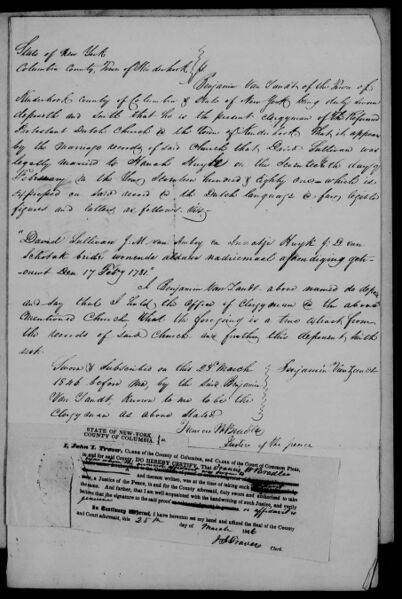 State of New York
Columbia County, Town of Kinderhook } ss
Benjamin Van Zandt, of the Town of
Kinderhook county of Columbia & State of New York being duly sworn
deposeth and saith that he is the present clergyman of the Reformed
Protestant Dutch Church in the Town of Kinderhook. That it appears
by the marriage records of said Church that David Sullivan was
legally married to Hannah on the Seventeenth day of
February in the Year Seventeen hundred & eighty one - which is
expressed on said record in the Dutch language in fair, legible
figures and letters as follows, viz-
"David Sullivan J. M. van en Huyk J. D van
Schotak beide woonende alhier
Den 17 Feby 1781"
I Benjamin Van Zandt above named do depose
and say that I hold the Office of Clergyman in the above
mentioned Church. That the foregoing is a true extract from
the records of said Church and further this deponent saith
not.
Sworn & Subscribed on this 25th March } Benjamin Van Zandt
1846 before me, by the said Benjamin
Van Zandt, known to me to be the
Clergyman as above Stated
Justice of the peace
STATE OF NEW-YORK, COUNTY OF COLUMBIA, } ss.
I, John T. Traver, CLERK of the County of Columbia, and CLERK of the Court of Common Pleas,
in and for said County, DO HEREBY CERTIFY, That
and thereon written, was at the time of taking such
a Justice of the Peace, in and for the County aforesaid, duly sworn and authorized to take
the same. And further, that I am well acquainted with the handwriting of such Justice, and verily
believe that the signature to the said
In Testimony Whereof, I have hereunto set my hand and affixed the Seal of the County
and Court aforesaid, this 25th day of March 1846
Clerk.